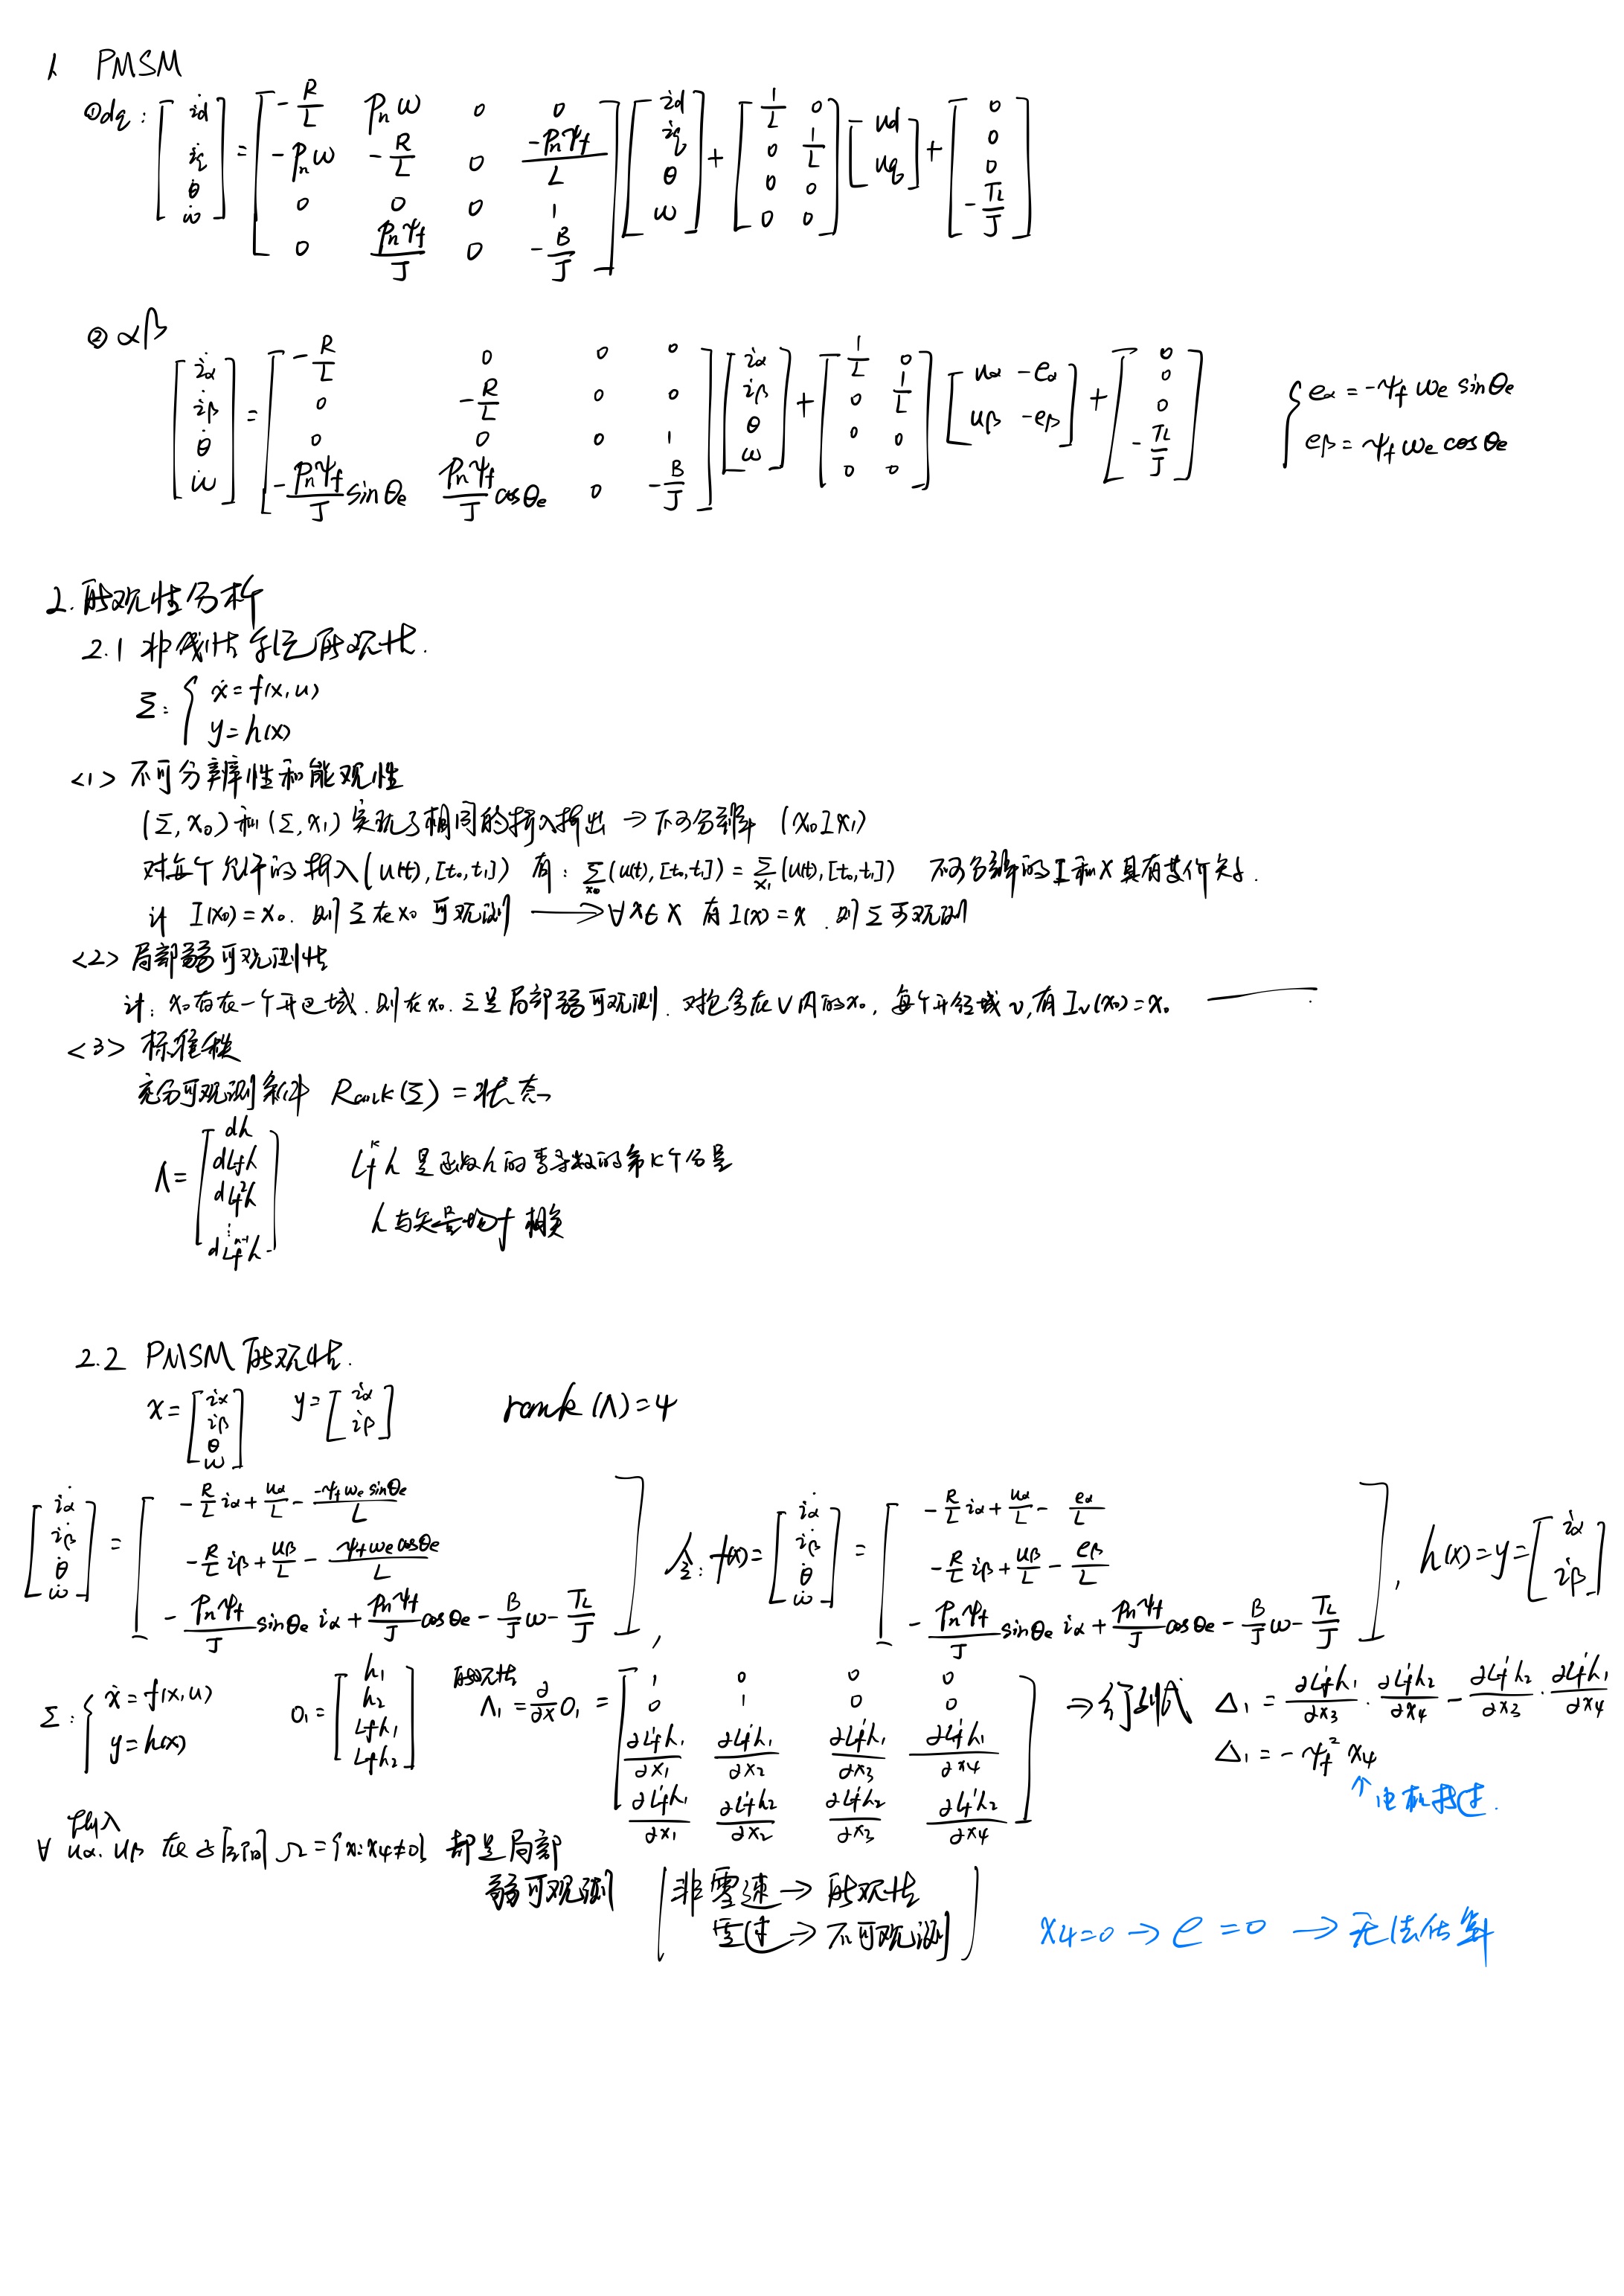 1. PMSM
① dq: [i̇d; i̇q; θ̇; ω̇] = [-R/L, Pnω, 0, 0; -Pnω, -R/L, 0, -Pnψf/L; 0, 0, 0, 1; 0, Pnψf/J, 0, -B/J] [id; iq; θ; ω] + [1/L, 0; 0, 1/L; 0, 0; 0, 0] [ud; uq] + [0; 0; 0; -TL/J]
② αβ
[i̇α; i̇β; θ̇; ω̇] = [-R/L, 0, 0, 0; 0, -R/L, 0, 0; 0, 0, 0, 1; -Pnψf/J sinθe, Pnψf/J cosθe, 0, -B/J] [iα; iβ; θ; ω] + [1/L, 0; 0, 1/L; 0, 0; 0, 0] [uα - eα; uβ - eβ] + [0; 0; 0; -TL/J] { eα = -ψf ωe sinθe; eβ = ψf ωe cosθe
2. 能观性分析
2.1 非线性系统能观性.
Σ: { ẋ = f(x, u)
y = h(x)
<1> 不可分辨性和能观性
(Σ, x0) 和 (Σ, x1) 实现了相同的输入输出 → 不可分辨 (x0 I x1)
对每个允许的输入 (u(t), [t0, t1]) 有: Σx0 (u(t), [t0, t1]) = Σx1 (u(t), [t0, t1]) 不可分辨的 I 和 X 具有等价关系.
I(x0) = x0. 则 Σ 在 x0 可观测 → ∀x∈X 有 I(x) = x. 则 Σ 可观测
<2> 局部弱可观测性
x0 存在一个开区域. 则在 x0. Σ 是局部弱可观测. 对包含在 V 内的 x0, 每个开邻域 v, 有 Iv(x0) = x0
<3> 标准秩
充分可观测条件 Rank(Σ) = 状态
Λ = [dh; dLfh; dLf²h; ⋮; dLfⁿ⁻¹h] Lfᵏh 是函数h的李导数的第K个分量
h 与矢量场f 相关
2.2 PMSM 能观性.
x = [iα; iβ; θ; ω] y = [iα; iβ] rank(Λ) = 4
[i̇α; i̇β; θ̇; ω̇] = [-R/L iα + uα/L - -ψf ωe sinθe/L; -R/L iβ + uβ/L - ψf ωe cosθe/L; -Pnψf/J sinθe iα + Pnψf/J cosθe - B/J ω - TL/J], 令: f(x) = [i̇α; i̇β; θ̇; ω̇] = [-R/L iα + uα/L - eα/L; -R/L iβ + uβ/L - eβ/L; -Pnψf/J sinθe iα + Pnψf/J cosθe - B/J ω - TL/J], h(x) = y = [iα; iβ]
Σ: { ẋ = f(x, u); y = h(x) O1 = [h1; h2; Lfh1; Lfh2] 能观性 Λ1 = ∂/∂x O1 = [1, 0, 0, 0; 0, 1, 0, 0; ∂Lf¹h1/∂x1, ∂Lf¹h1/∂x2, ∂Lf¹h1/∂x3, ∂Lf¹h1/∂x4; ∂Lf¹h1/∂x1, ∂Lf¹h2/∂x2, ∂Lf¹h2/∂x3, ∂Lf¹h2/∂x4] → 行列式 Δ1 = ∂Lf¹h1/∂x3 · ∂Lf¹h2/∂x4 - ∂Lf¹h2/∂x3 · ∂Lf¹h1/∂x4
Δ1 = -ψf² x4
↑ 电机转速.
输入
∀ uα. uβ 在空间 Ω = {x: x4≠0} 都是局部
弱可观测 (非零速 → 能观性
零速 → 不可观测)
x4=0 → e = 0 → 无法估算